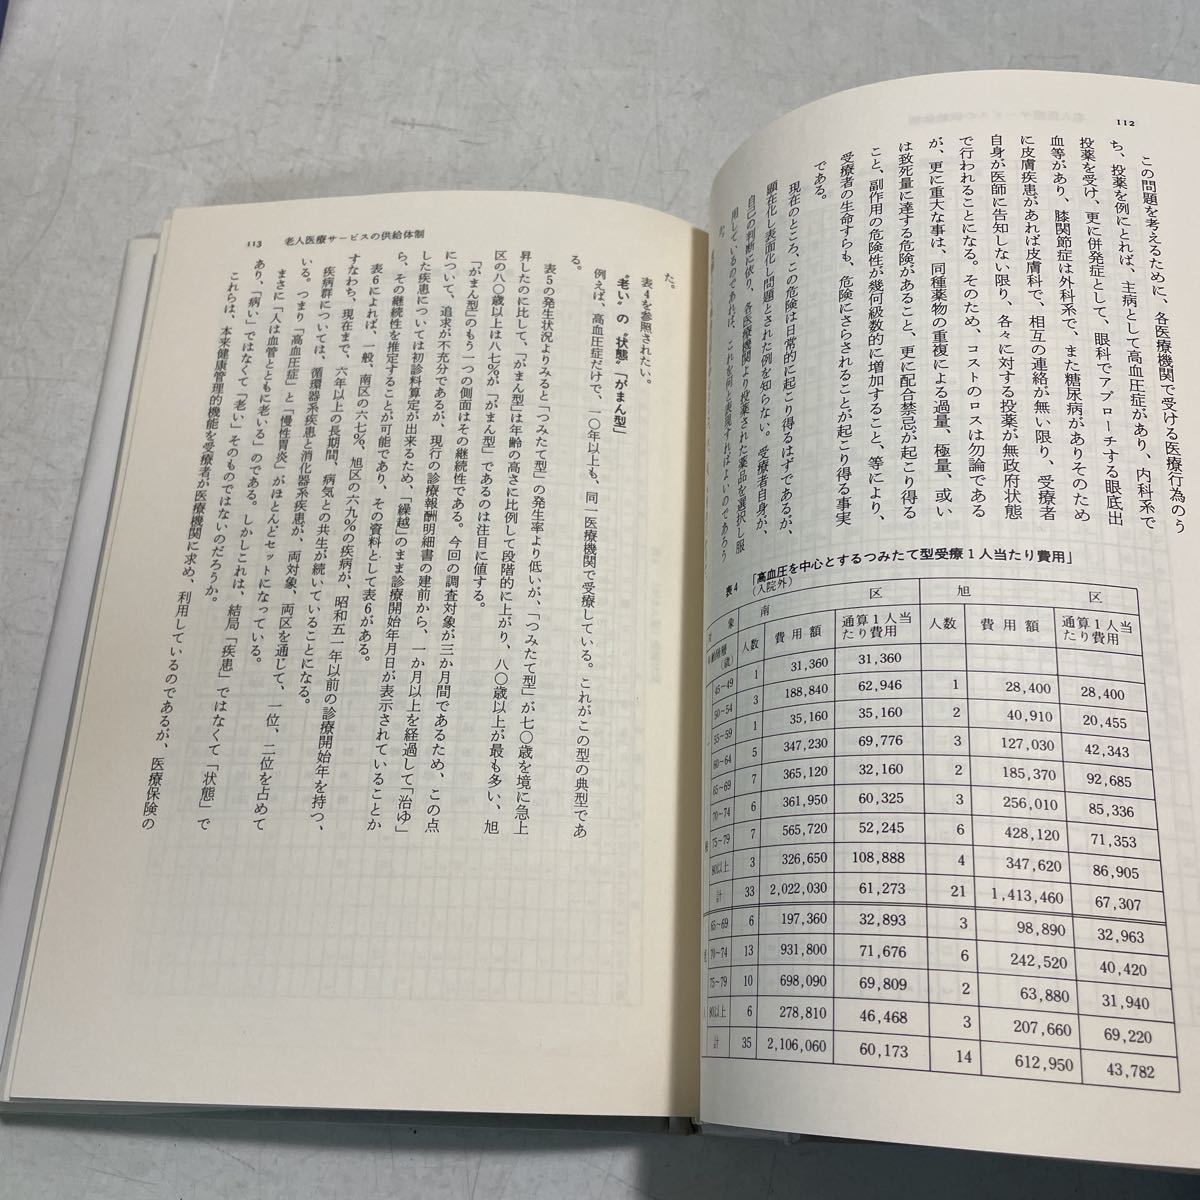 112
この問題を考えるために、各医療機関で受ける医療行為のう
ち、投薬を例にとれば、主病として高血圧症があり、内科系で
投薬を受け、更に併発症として、眼科でアプローチする眼底出
血等があり、膝関節症は外科系で、また糖尿病がありそのため
に皮膚疾患があれば皮膚科で、相互の連絡が無い限り、受療者
自身が医師に告知しない限り、各々に対する投薬が無政府状態
で行われることになる。そのため、コストのロスは勿論である
が、更に重大な事は、同種薬物の重複による過量、極量、或い
は致死量に達する危険があること、更に配合禁忌が起こり得る
こと、副作用の危険性が幾何級数的に増加すること、等により、
受療者の生命すらも、危険にさらされることが起こり得る事実
である。
現在のところ、この危険は日常的に起こり得るはずであるが、
顕在化し表面化し問題とされた例を知らない。受療者自身が、
自己の判断に依り、各医療機関より投薬された薬品を選択し服
用しているのであれば、これを何と表現すればよいのであろう
か。
表4 「高血圧を中心とするつみたて型受療1人当たり費用」
(入院外)
対象 南区 旭区
年齢階層(歳) 人数 費用額 通算1人当たり費用 人数 費用額 通算1人当たり費用
45~49 1 31,360 31,360
50~54 3 188,840 62,946 1 28,400 28,400
55~59 1 35,160 35,160 2 40,910 20,455
60~64 5 347,230 69,776 3 127,030 42,343
65~69 7 365,120 32,160 2 185,370 92,685
70~74 6 361,950 60,325 3 256,010 85,336
75~79 7 565,720 52,245 6 428,120 71,353
80以上 3 326,650 108,888 4 347,620 86,905
計 33 2,022,030 61,273 21 1,413,460 67,307
65~69 6 197,360 32,893 3 98,890 32,963
70~74 13 931,800 71,676 6 242,520 40,420
75~79 10 698,090 69,809 2 63,880 31,940
80以上 6 278,810 46,468 3 207,660 69,220
計 35 2,106,060 60,173 14 612,950 43,782
113 老人医療サービスの供給体制
た。
表4を参照されたい。
〝老い〟の〝状態〟「がまん型」
例えば、高血圧症だけで、一〇年以上も、同一医療機関で受療している。これがこの型の典型であ
る。
表5の発生状況よりみると「つみたて型」の発生率より低いが、「つみたて型」が七〇歳を境に急上
昇したのに比して、「がまん型」は年齢の高さに比例して段階的に上がり、八〇歳以上が最も多い、旭
区の八〇歳以上は八七%が「がまん型」であるのは注目に値する。
「がまん型」のもう一つの側面はその継続性である。今回の調査対象が三か月間であるため、この点
について、追求が不充分であるが、現行の診療報酬明細書の建前から、一か月以上を経過して「治ゆ」
した疾患については初診料算定が出来るため、「繰越」のまま診療開始年月日が表示されていることか
ら、その継続性を推定することが可能であり、その資料として表6がある。
表6によれば、一般、南区の六七%、旭区の六九%の疾病が、昭和五一年以前の診療開始年を持つ、
すなわち、現在まで、六年以上の長期間、病気との共生が続いていることになる。
疾病群については、循環器系疾患と消化器系疾患が、両対象、両区を通じて、一位、二位を占めて
いる。つまり「高血圧症」と「慢性胃炎」がほとんどセットになっている。
まさに「人は血管とともに老いる」のである。しかしこれは、結局「疾患」ではなくて「状態」で
あり、「病い」ではなくて「老い」そのものではないのだろうか。
これらは、本来健康管理的機能を受療者が医療機関に求め、利用しているのであるが、医療保険の